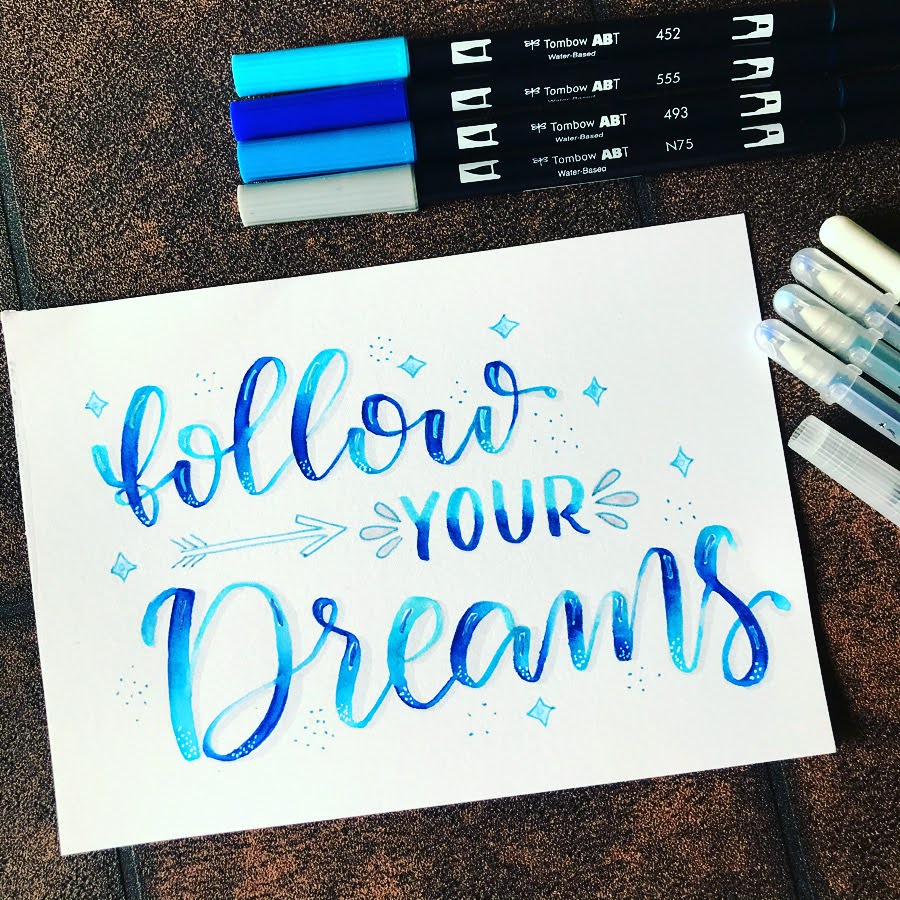 Tombow ABT 452
Water-Based
Tombow ABT 555
Water-Based
Tombow ABT 493
Water-Based
Tombow ABT N75
Water-Based
follow
YOUR
Dreams